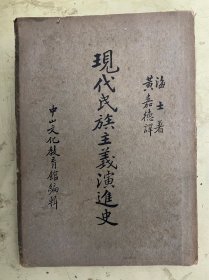 海士著
黃嘉德譯
現代民族主義演進史
中山文化教育館編輯